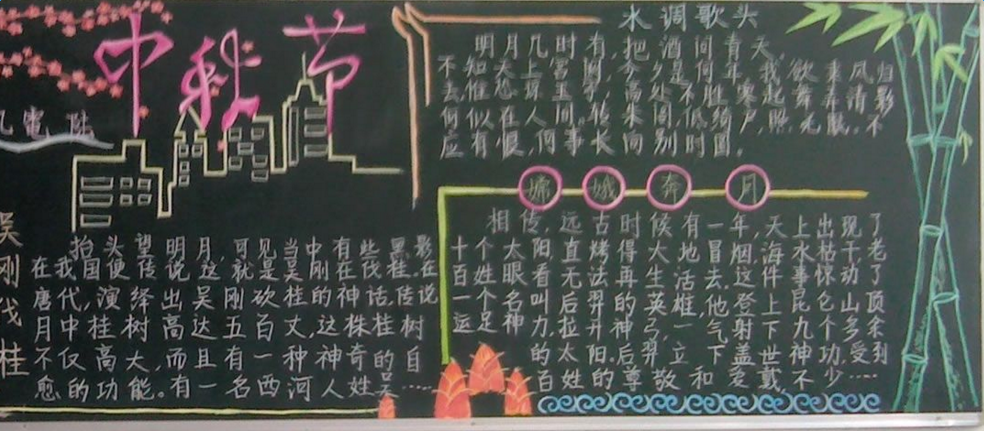 中秋节
水调歌头
明月几时有,把酒问青天,
不知天上宫阙,今夕是何年。我欲乘风归
去
何似在人间。
应有恨,何事长向别时圆。
嫦娥奔月
相传,远古时候有一年,天上出现了
十个太阳,直烤得大地冒烟,海水枯干,老
百姓眼看无法再生活去。这件事惊动了
一个名叫后羿的英雄,他登上昆仑山顶
运足神力,拉开神弓,一气射下九个多余
的太阳。后羿立下盖世神功,受到
百姓的尊敬和爱戴,不少……
吴刚伐桂
抬头望明月,可见当中有些黑影
在我国便传说,这就是吴刚在伐桂。在
唐代,演绎出吴刚砍桂的神话,传说
月中桂树高达五百丈,这株桂树
不仅高大,而且有一种神奇的自
愈的功能。有一名西河人姓吴……